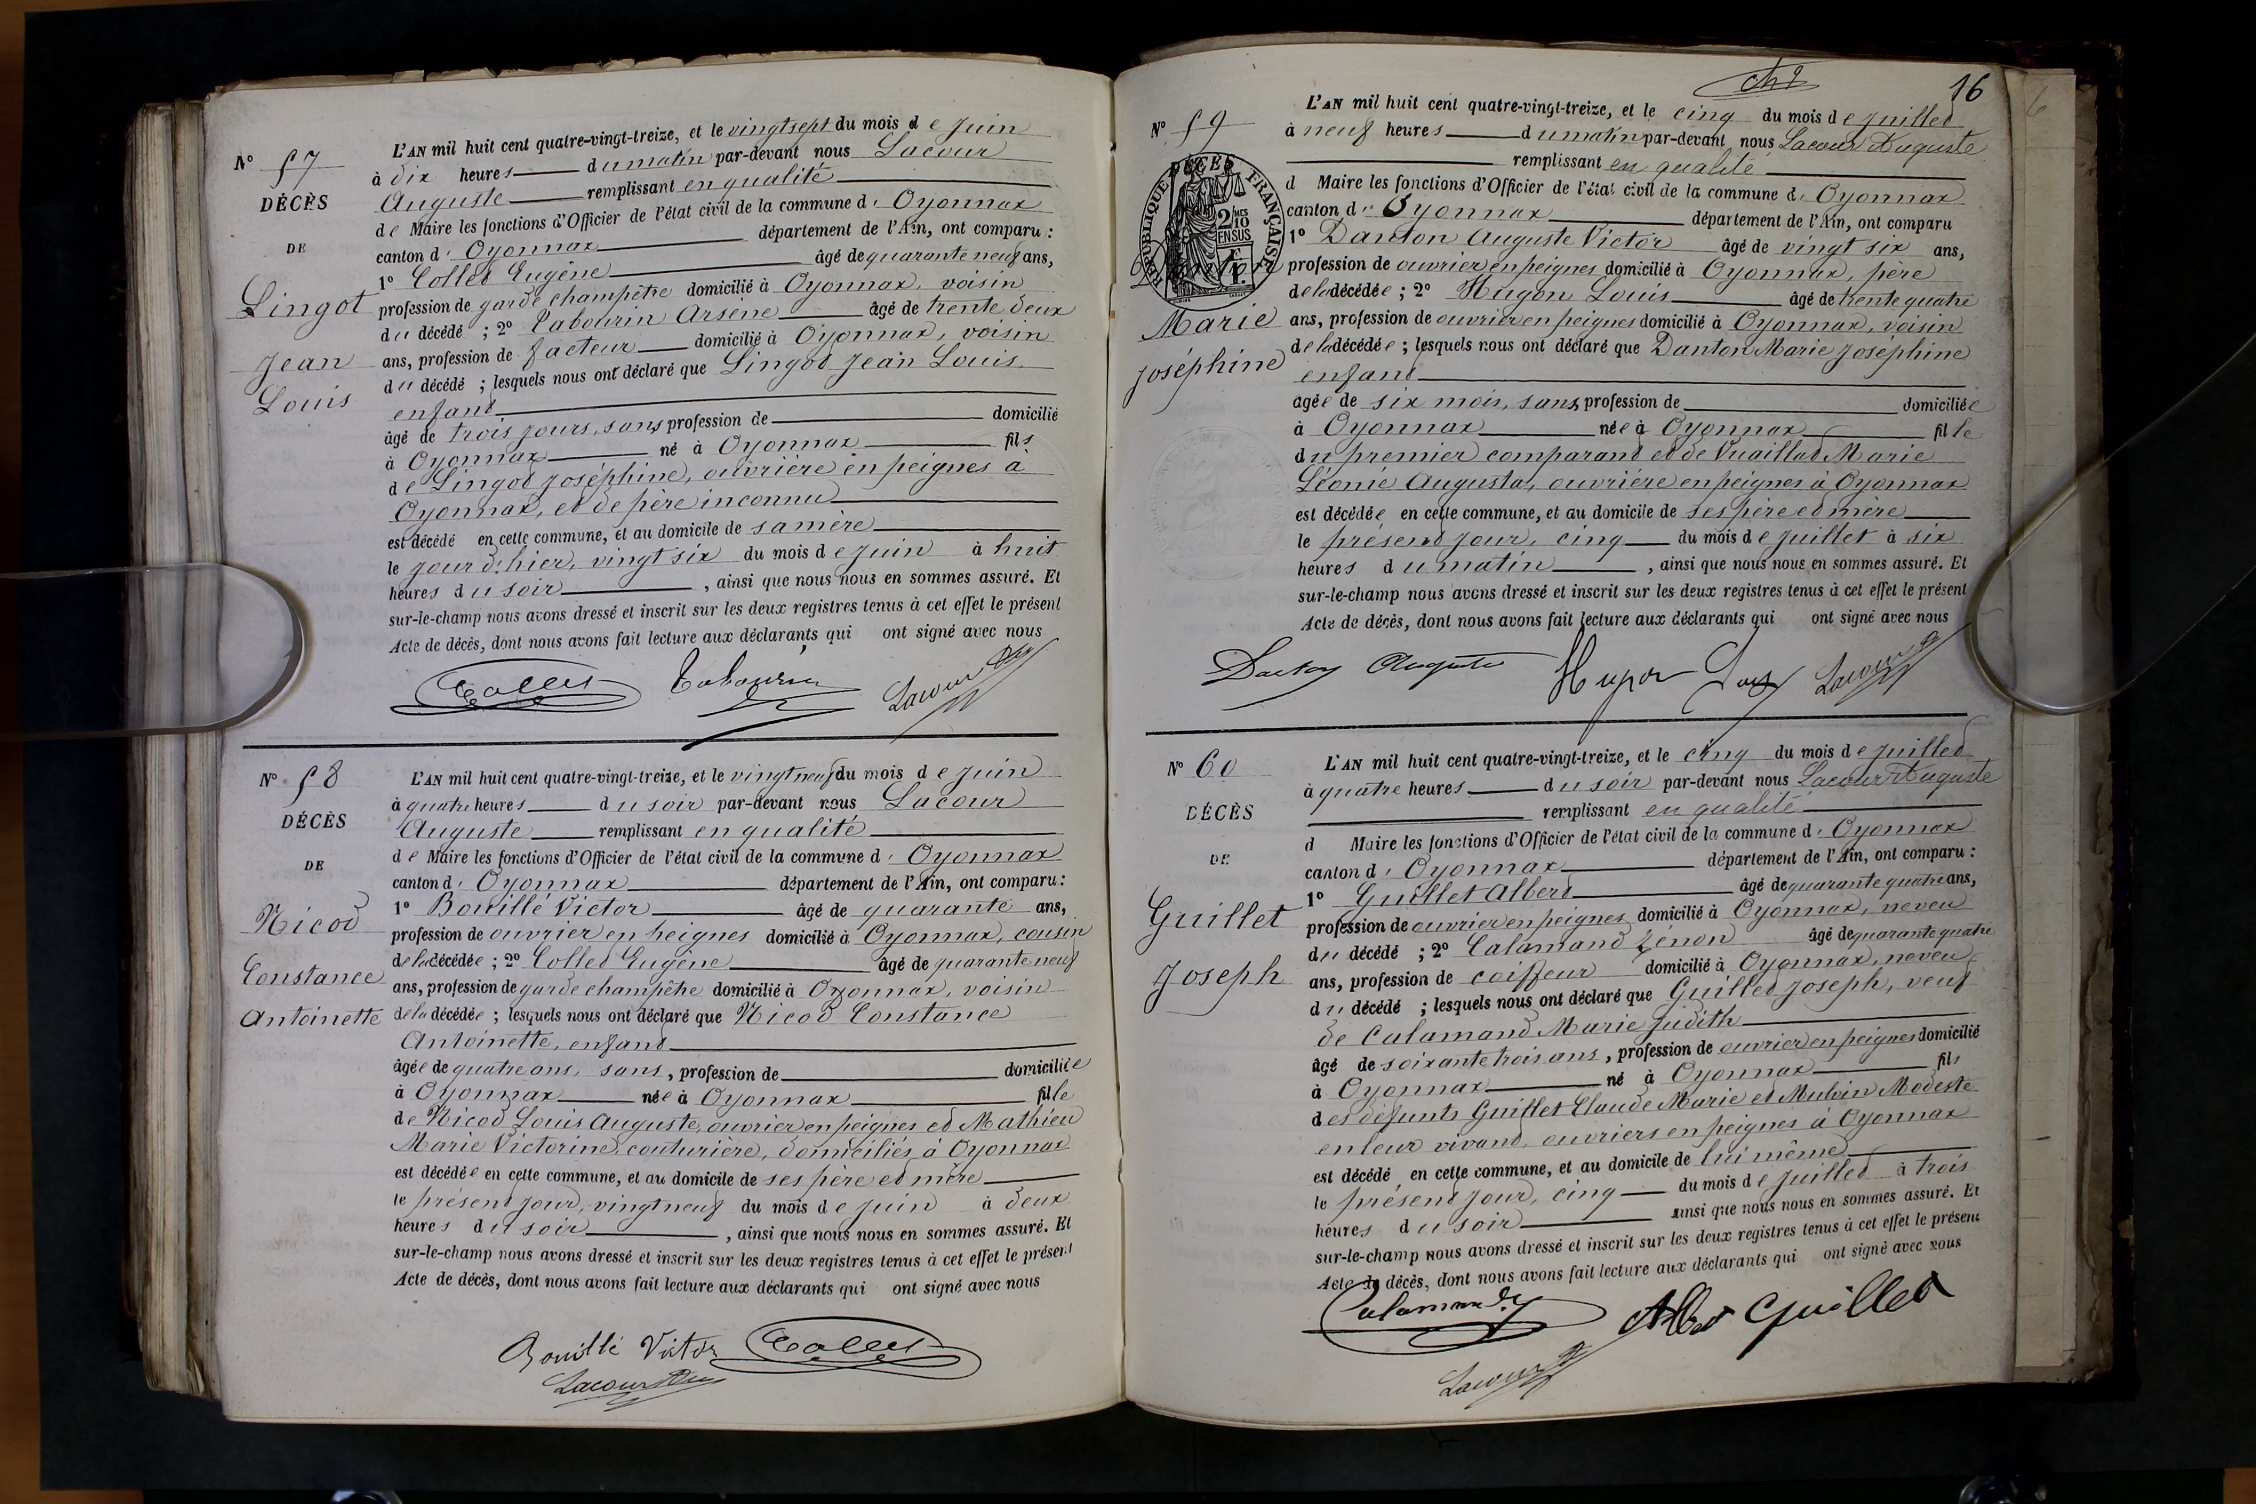 N° 57
DÉCÈS
DE
Lingot
Jean
Louis
L'AN mil huit cent quatre-vingt-treize, et le vingt sept du mois de Juin
à dix heures du matin par-devant nous Lacour
Auguste remplissant en qualité
de Maire les fonctions d'Officier de l'état civil de la commune d' Oyonnax
canton d' Oyonnax département de l'Ain, ont comparu :
1° Collet Eugène âgé de quarante neuf ans,
profession de garde champêtre domicilié à Oyonnax, voisin
du décédé ; 2° Tabourin Arsène âgé de trente deux
ans, profession de facteur domicilié à Oyonnax, voisin
du décédé ; lesquels nous ont déclaré que Lingot Jean Louis,
enfant
âgé de trois jours, sans profession de domicilié
à Oyonnax né à Oyonnax fils
de Lingot Joséphine, ouvrière en peignes à
Oyonnax, et de père inconnu
est décédé en cette commune, et au domicile de sa mère
le jour d'hier, vingt six du mois de Juin à huit
heures du soir, ainsi que nous nous en sommes assuré. Et
sur-le-champ nous avons dressé et inscrit sur les deux registres tenus à cet effet le présent
Acte de décès, dont nous avons fait lecture aux déclarants qui ont signé avec nous
Collet Tabourin Lacour
N° 58
DÉCÈS
DE
Nicod
Constance
Antoinette
L'AN mil huit cent quatre-vingt-treize, et le vingt neuf du mois de Juin
à quatre heures du soir par-devant nous Lacour
Auguste remplissant en qualité
de Maire les fonctions d'Officier de l'état civil de la commune d' Oyonnax
canton d' Oyonnax département de l'Ain, ont comparu :
1° Bouillé Victor âgé de quarante ans,
profession de ouvrier en peignes domicilié à Oyonnax, cousin
de la décédée ; 2° Collet Eugène âgé de quarante neuf
ans, profession de garde champêtre domicilié à Oyonnax, voisin
de la décédée ; lesquels nous ont déclaré que Nicod Constance
Antoinette, enfant
âgée de quatre ans, sans, profession de domiciliée
à Oyonnax née à Oyonnax fille
de Nicod Louis Auguste, ouvrier en peignes et Mathieu
Marie Victorine, couturière, domiciliés à Oyonnax
est décédée en cette commune, et au domicile de ses père et mère
le présent jour, vingt neuf du mois de Juin à deux
heures du soir, ainsi que nous nous en sommes assuré. Et
sur-le-champ nous avons dressé et inscrit sur les deux registres tenus à cet effet le présent
Acte de décès, dont nous avons fait lecture aux déclarants qui ont signé avec nous
Bouillé Victor Collet
Lacour
16
N° 59
DÉCÈS
RÉPUBLIQUE FRANÇAISE
2 MES 10 EN SUS
Danton
Marie
Joséphine
L'AN mil huit cent quatre-vingt-treize, et le cinq du mois de Juillet
à neuf heures du matin par-devant nous Lacour Auguste
remplissant en qualité
d Maire les fonctions d'Officier de l'état civil de la commune d' Oyonnax
canton d' Oyonnax département de l'Ain, ont comparu
1° Danton Auguste Victor âgé de vingt six ans,
profession de ouvrier en peignes domicilié à Oyonnax, père
de la décédée ; 2° Hugon Louis âgé de trente quatre
ans, profession de ouvrier en peignes domicilié à Oyonnax, voisin
de la décédée ; lesquels nous ont déclaré que Danton Marie Joséphine
enfant
âgée de six mois, sans profession de domiciliée
à Oyonnax née à Oyonnax fille
du premier comparant et de Vuaillat Marie
Léonie Augusta, ouvrière en peignes à Oyonnax
est décédée en cette commune, et au domicile de ses père et mère
le présent jour, cinq du mois de Juillet à six
heures du matin, ainsi que nous nous en sommes assuré. Et
sur-le-champ nous avons dressé et inscrit sur les deux registres tenus à cet effet le présent
Acte de décès, dont nous avons fait lecture aux déclarants qui ont signé avec nous
Danton Auguste Hugon Louis Lacour
N° 60
DÉCÈS
DE
Guillet
Joseph
L'AN mil huit cent quatre-vingt-treize, et le cinq du mois de Juillet
à quatre heures du soir par-devant nous Lacour Auguste
remplissant en qualité
d Maire les fonctions d'Officier de l'état civil de la commune d' Oyonnax
canton d' Oyonnax département de l'Ain, ont comparu :
1° Guillet Albert âgé de quarante quatre ans,
profession de ouvrier en peignes domicilié à Oyonnax, neveu
du décédé ; 2° Calamand Zénon âgé de quarante quatre
ans, profession de coiffeur domicilié à Oyonnax, neveu
du décédé ; lesquels nous ont déclaré que Guillet Joseph, veuf
de Calamand Marie Judith
âgé de soixante trois ans, profession de ouvrier en peignes domicilié
à Oyonnax né à Oyonnax fils
des défunts Guillet Claude Marie et Mulvin Modeste
en leur vivant, ouvriers en peignes à Oyonnax
est décédé en cette commune, et au domicile de lui même
le présent jour, cinq du mois de Juillet à trois
heures du soir ainsi que nous nous en sommes assuré. Et
sur-le-champ nous avons dressé et inscrit sur les deux registres tenus à cet effet le présent
Acte de décès, dont nous avons fait lecture aux déclarants qui ont signé avec nous
Calamand Z Albert Guillet
Lacour